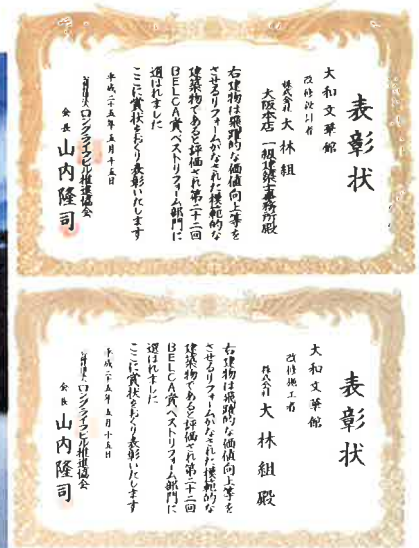 表彰状
大和文華館
改修設計者
株式会社 大林組
大阪本店 一級建築士事務所殿
右建物は飛躍的な価値向上等を
させるリフォームがなされた模範的な
建築物であると評価され第二十二回
BELCA賞ベストリフォーム部門に
選ばれました
ここに賞状をおくり表彰いたします
平成二十五年五月十五日
ロングライフビル推進協会
会長 山内隆司
表彰状
大和文華館
改修施工者
株式会社 大林組殿
右建物は飛躍的な価値向上等を
させるリフォームがなされた模範的な
建築物であると評価され第二十二回
BELCA賞ベストリフォーム部門に
選ばれました
ここに賞状をおくり表彰いたします
平成二十五年五月十五日
ロングライフビル推進協会
会長 山内隆司